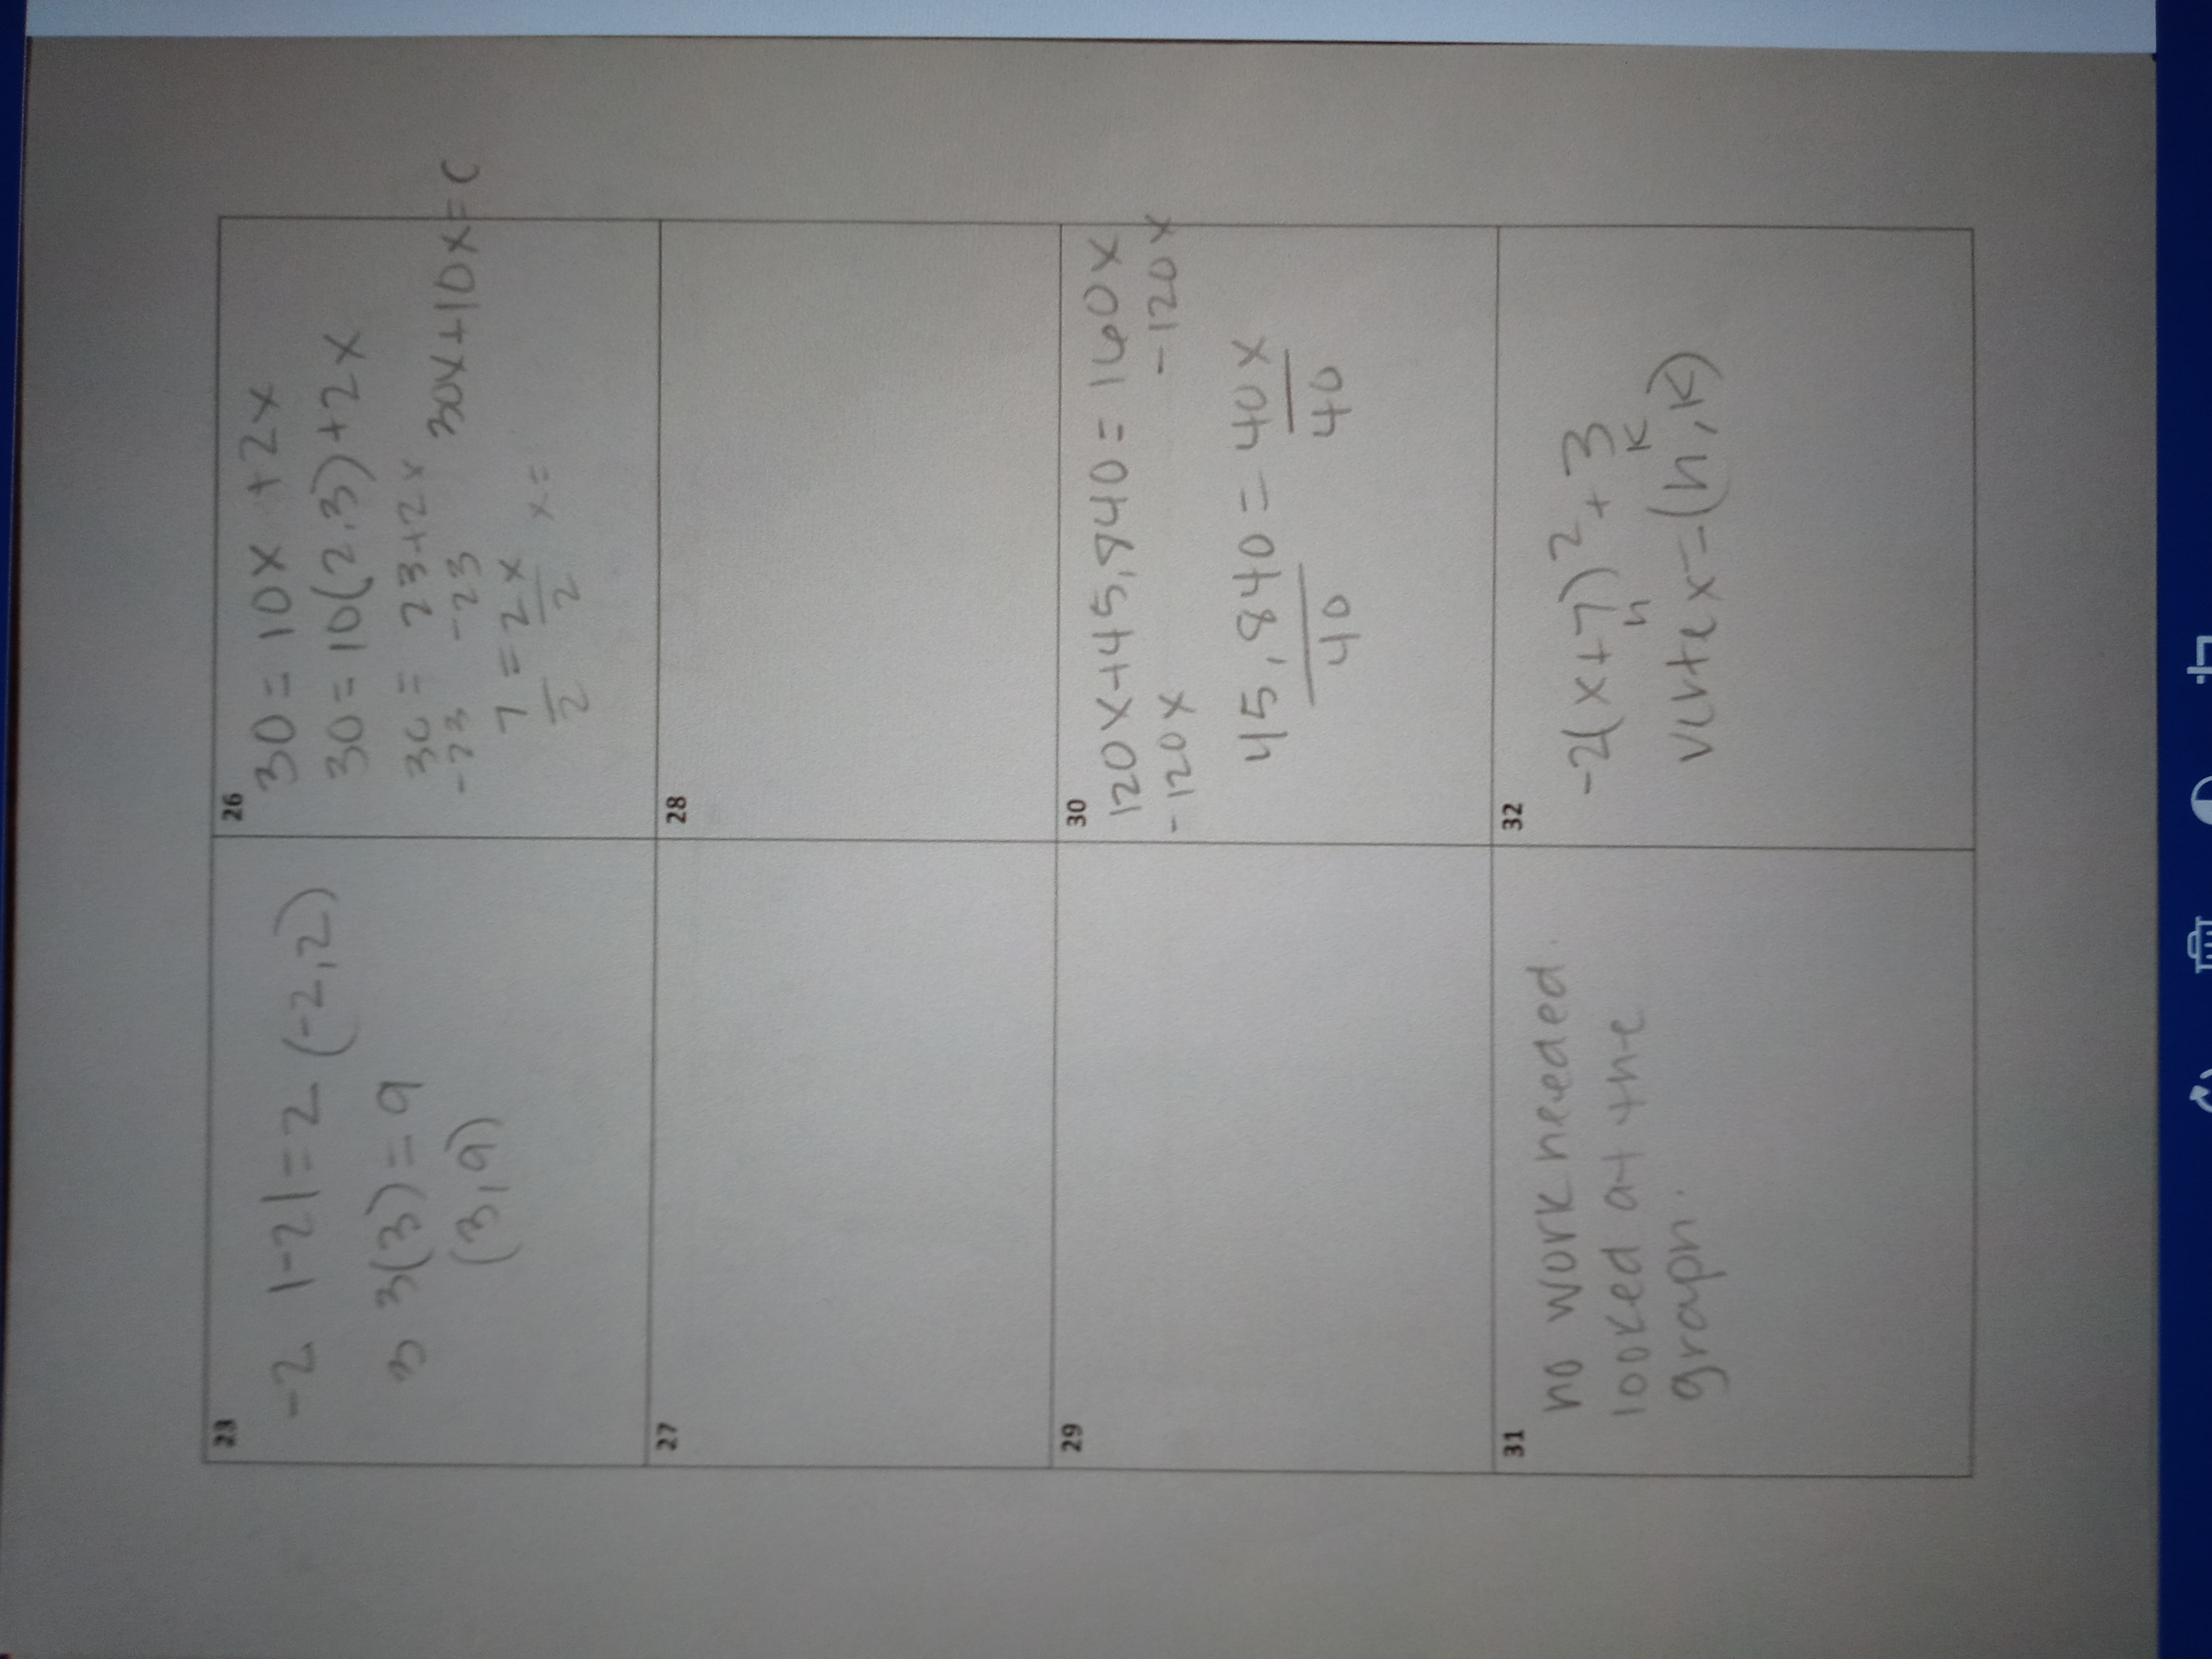 23
-2 |-2|=2 (-2,2)
3 3(3)=9
(3,9)
26
30=10x +2x
30=10(2.3)+2x
30= 23+2x
-23 -23
30x+10x=C
7=2x
2 2
x=
27
28
29
30
120x+45,840=160x
-120x -120x
45,840=40x
40 40
31
no work needed.
looked at the
graph.
32
-2(x+7)²+3
h k
vertex=(h,k)